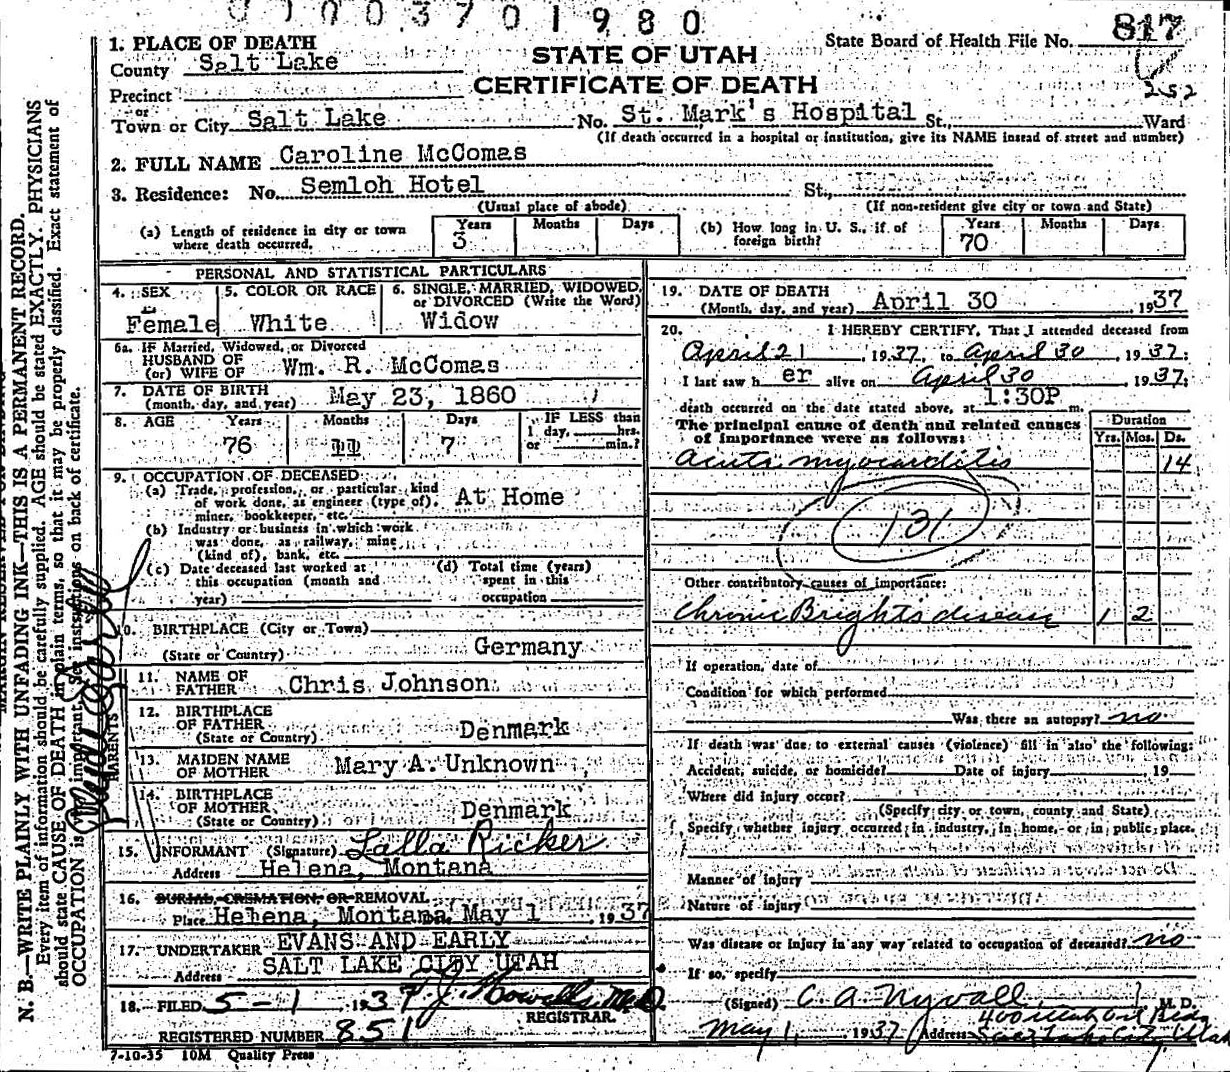 0 0 0 0 3 7 0 1 9 8 0
State Board of Health File No. 817
252
STATE OF UTAH
CERTIFICATE OF DEATH
1. PLACE OF DEATH
County Salt Lake
Precinct
or
Town or City Salt Lake No. St. Mark's Hospital St., Ward
(If death occurred in a hospital or institution, give its NAME instead of street and number)
2. FULL NAME Caroline McComas
3. Residence: No. Semloh Hotel St.,
(Usual place of abode) (If non-resident give city or town and State)
(a) Length of residence in city or town where death occurred. Years 3 Months Days
(b) How long in U. S., if of foreign birth? Years 70 Months Days
PERSONAL AND STATISTICAL PARTICULARS
4. SEX Female
5. COLOR OR RACE White
6. SINGLE, MARRIED, WIDOWED, or DIVORCED (Write the Word) Widow
6a. IF Married, Widowed, or Divorced
HUSBAND OF
(or) WIFE OF Wm. R. McComas
7. DATE OF BIRTH
(month, day, and year) May 23, 1860
8. AGE Years 76 Months 11 Days 7
IF LESS than
1 day, hrs.
or min.?
9. OCCUPATION OF DECEASED
(a) Trade, profession, or particular kind
of work done, as engineer (type of),
miner, bookkeeper, etc. At Home
(b) Industry or business in which work
was done, as railway, mine
(kind of), bank, etc.
(c) Date deceased last worked at
this occupation (month and
year)
(d) Total time (years)
spent in this
occupation
10. BIRTHPLACE (City or Town)
(State or Country) Germany
PARENTS
11. NAME OF
FATHER Chris Johnson
12. BIRTHPLACE
OF FATHER
(State or Country) Denmark
13. MAIDEN NAME
OF MOTHER Mary A. Unknown
14. BIRTHPLACE
OF MOTHER
(State or Country) Denmark
15. INFORMANT (Signature) Lalla Ricker
Address Helena, Montana
16. BURIAL, CREMATION, OR REMOVAL
Place Helena, Montana May 1, 1937
17. UNDERTAKER EVANS AND EARLY
Address SALT LAKE CITY UTAH
18. FILED 5-1 1937
REGISTRAR.
REGISTERED NUMBER 851
7-10-35 10M Quality Press
19. DATE OF DEATH
(Month, day, and year) April 30, 1937
20. I HEREBY CERTIFY, That I attended deceased from
April 21, 1937, to April 30, 1937;
I last saw her alive on April 30, 1937;
death occurred on the date stated above, at 1:30P m.
The principal cause of death and related causes
of importance were as follows:
Duration
Yrs. Mos. Ds.
Acute myocarditis 14
131
Other contributory causes of importance:
Chronic Bright's disease 1 2
If operation, date of
Condition for which performed
Was there an autopsy? no
If death was due to external causes (violence) fill in also the following:
Accident, suicide, or homicide? Date of injury , 19
Where did injury occur?
(Specify city or town, county and State)
Specify whether injury occurred in industry, in home, or in public place.
Manner of injury
Nature of injury
Was disease or injury in any way related to occupation of deceased? no
If so, specify
(Signed) C. A. Nyvall, M. D.
May 1, 1937 Address 400 Utah Oil Bldg
Salt Lake City, Utah
N. B.—WRITE PLAINLY WITH UNFADING INK—THIS IS A PERMANENT RECORD.
Every item of information should be carefully supplied. AGE should be stated EXACTLY. PHYSICIANS
should state CAUSE OF DEATH in plain terms, so that it may be properly classified. Exact statement of
OCCUPATION is important. See instructions on back of certificate.